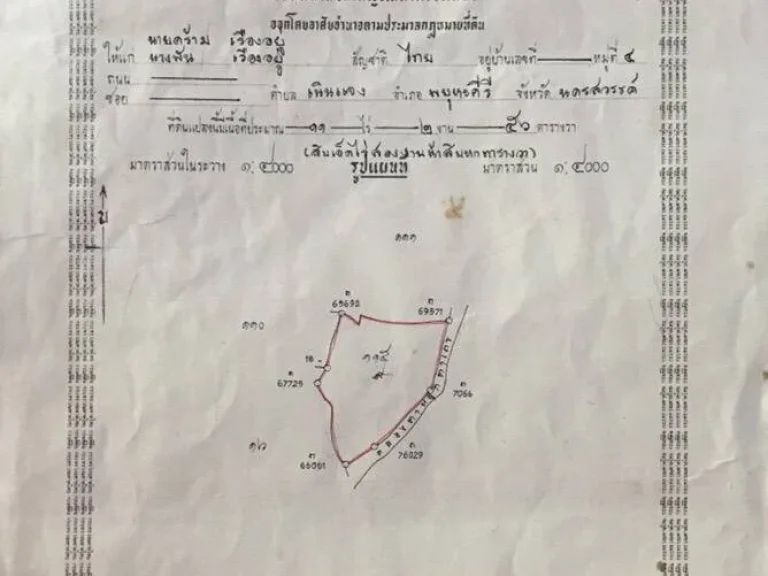 ออกโดยอาศัยอำนาจตามประมวลกฎหมายที่ดิน
นายคร้าม เรืองอยู่
ให้แก่ นางพัน เรืองอยู่ สัญชาติ ไทย อยู่บ้านเลขที่ หมู่ที่ ๔
ถนน
ซอย ตำบล เนินมะกอก อำเภอ พยุหะคีรี จังหวัด นครสวรรค์
ที่ดินแปลงนี้มีเนื้อที่ประมาณ ๑๑ ไร่ ๒ งาน ๕๖ ตารางวา
(สิบเอ็ดไร่สองงานห้าสิบหกตารางวา)
มาตราส่วนในระวาง ๑: ๔๐๐๐ รูปแผนที่ มาตราส่วน ๑: ๔๐๐๐
น
๑๑๑
ก
69692
ก
69971
๑๑๐
๑๑๕
18
ก
67725
ก
7066
๑๖
ก
66061
ก
76029